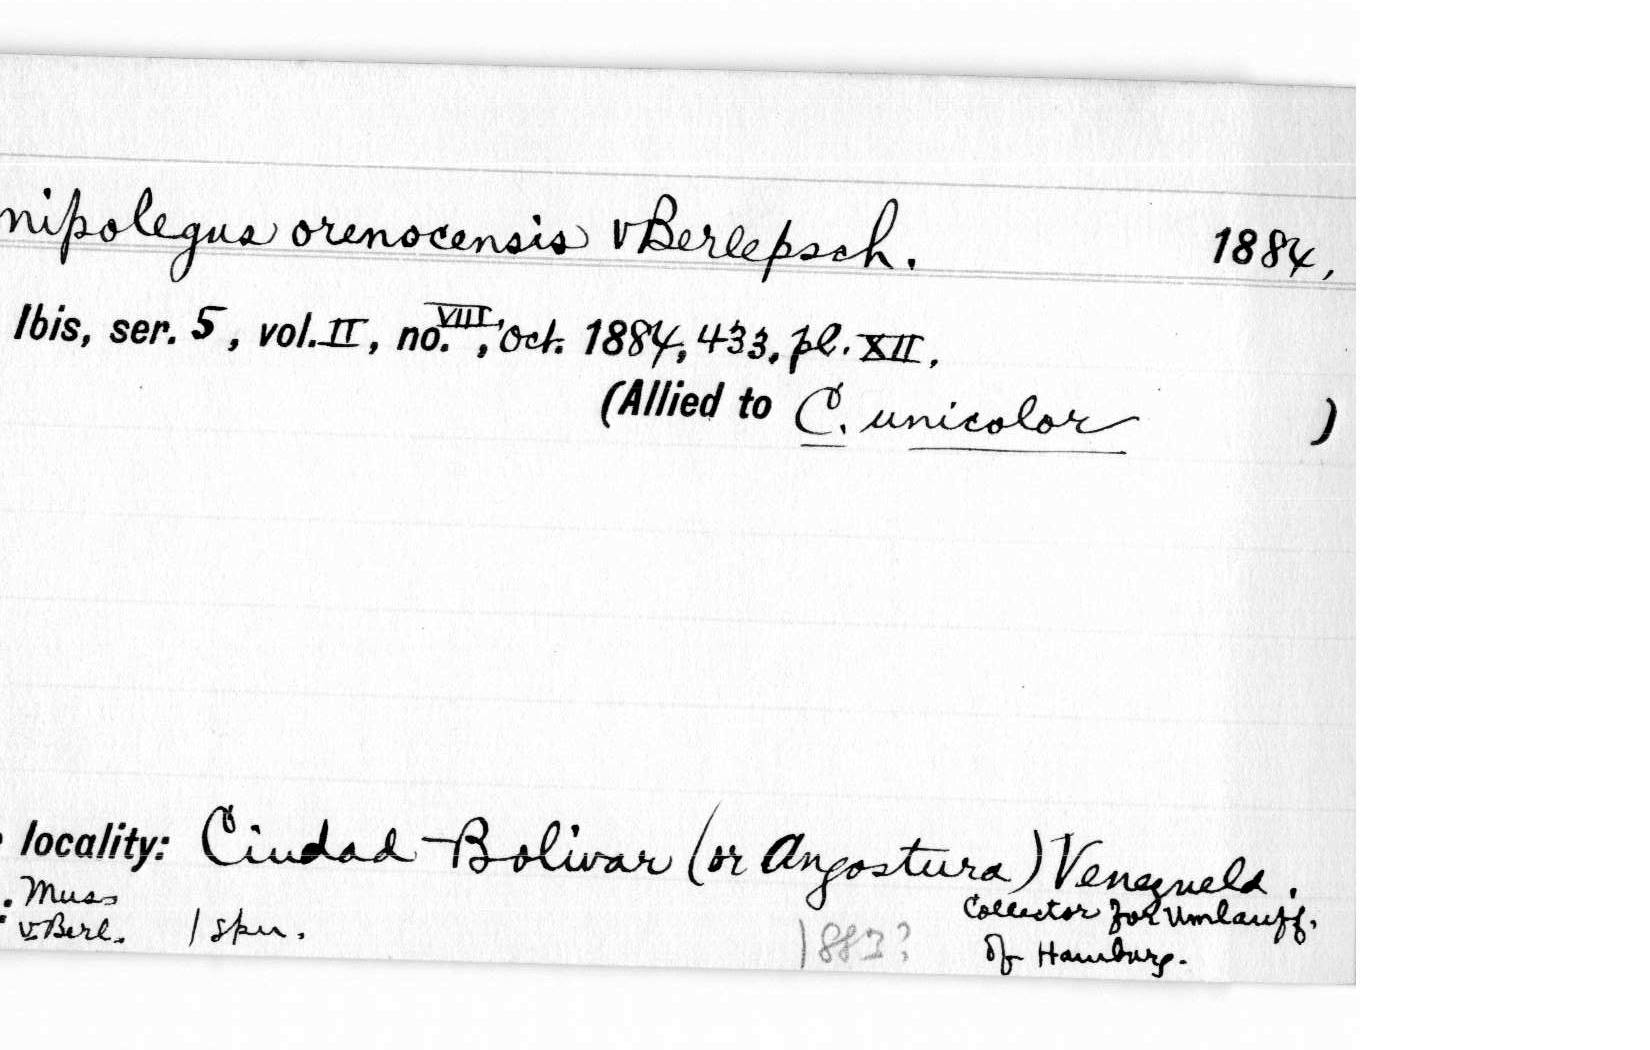 nipolegus orenocensis vBerlepsch. 1884,
Ibis, ser. 5, vol. II, no. VIII, Oct. 1884, 433, pl. XII.
(Allied to C. unicolor )
locality: Ciudad Bolivar (or Angostura) Venezuela.
. Mus
v.Berl. 1 spn. 1883? Collector for Umlauff,
of Hamburg.